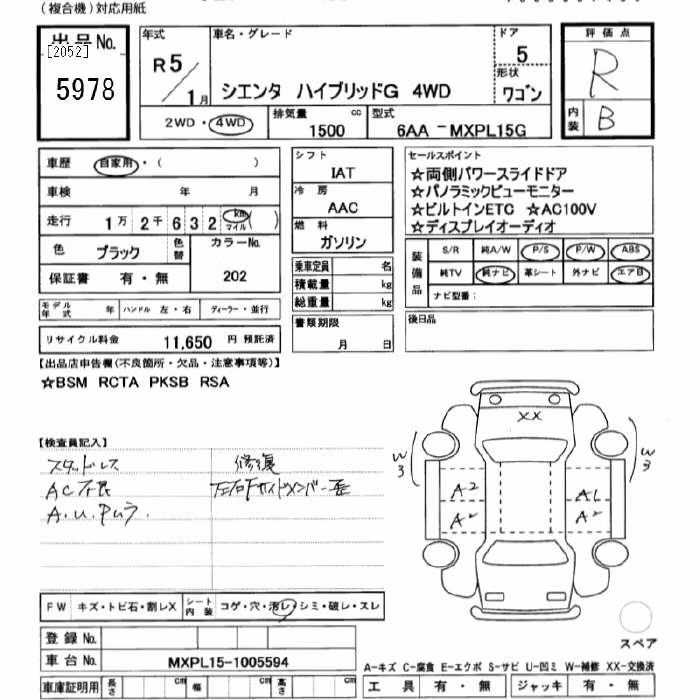 (複合機)対応用紙
出品No.
[2052]
5978
年式
R5/1月
車名・グレード
シエンタ ハイブリッドG 4WD
ドア
5
形状
ワゴン
評価点
R
内装
B
2WD・4WD
排気量
1500
cc
型式
6AA-MXPL15G
車歴
自家用・( )
車検 年 月
走行 1万2千632 km マイル ( )
色 ブラック
色替
カラーNo.
202
保証書 有・無
モデル年式 年
ハンドル 左・右
ディーラー・並行
リサイクル料金 11,650 円 預託済
シフト
IAT
冷房
AAC
燃料
ガソリン
乗車定員 名
積載量 kg
総重量 kg
書類期限
月 日
セールスポイント
☆両側パワースライドドア
☆パノラミックビューモニター
☆ビルトインETC ☆AC100V
☆ディスプレイオーディオ
装備品
S/R 純A/W P/S P/W ABS
純TV 純ナビ 革シート 外ナビ エアB
ナビ型番:
後日品
【出品店申告欄(不良箇所・欠品・注意事項等)】
☆BSM RCTA PKSB RSA
【検査員記入】
スタッドレス
AC不良
修復
左右Fサイドメンバー歪
XX
W3
W3
A2
A2
A1
A2
FW キズ・トビ石・割レX
シート内装
コゲ・穴・汚レ・シミ・破レ・スレ
スペア
登録No.
車台No. MXPL15-1005594
車庫証明用 長さ cm 幅 cm 高さ cm
A-キズ C-腐食 E-エクボ S-サビ U-凹ミ W-補修 XX-交換済
工具 有・無 ジャッキ 有・無